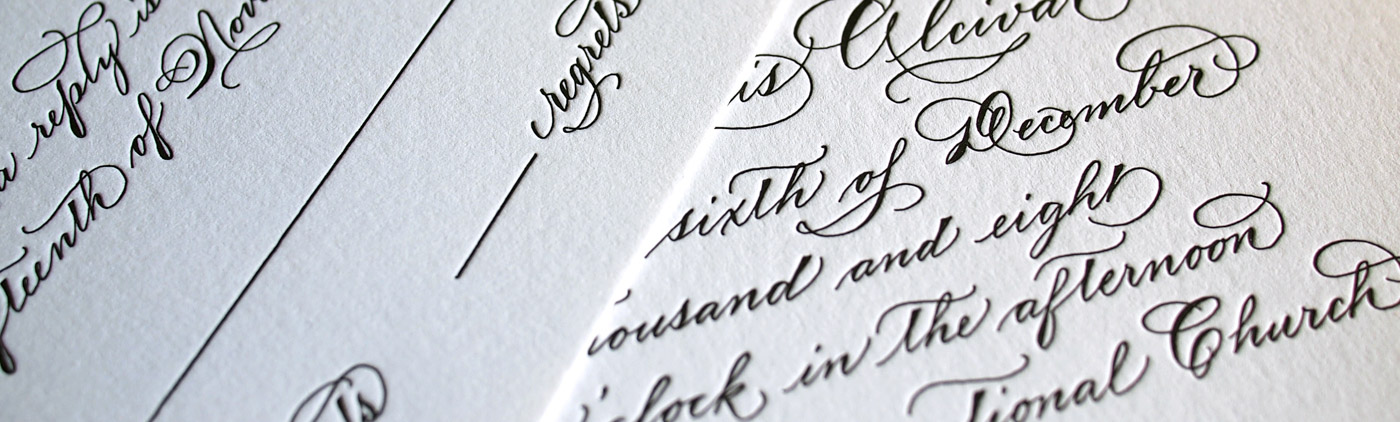 a reply is
teenth of Nov
regrets
is Alcivar
sixth of December
ousand and eight
o'clock in the afternoon
tional Church